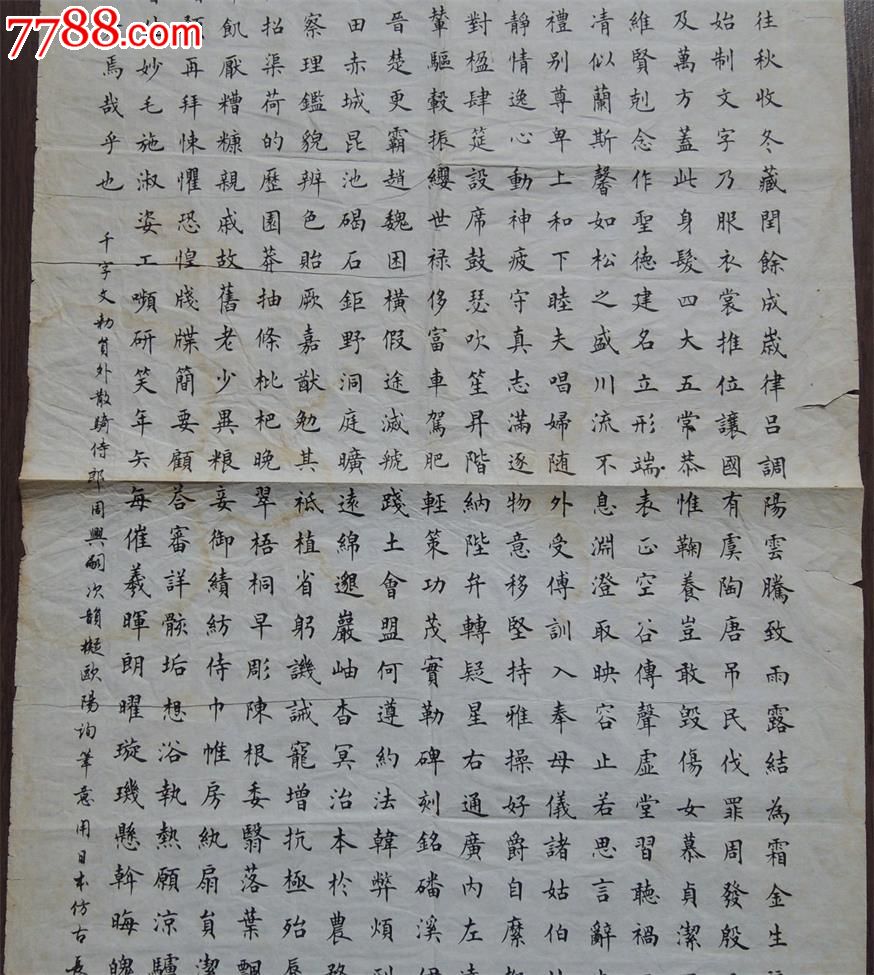 7788.com
往秋收冬藏閏餘成歲律吕調陽雲騰致雨露結為霜金生
始制文字乃服衣裳推位讓國有虞陶唐吊民伐罪周發殷
及萬方蓋此身髮四大五常恭惟鞠養豈敢毀傷女慕貞潔
維賢剋念作聖德建名立形端表正空谷傳聲虛堂習聽禍
清似蘭斯馨如松之盛川流不息淵澄取映容止若思言辭
禮別尊卑上和下睦夫唱婦随外受傅訓入奉母儀諸姑伯
靜情逸心動神疲守真志滿逐物意移堅持雅操好爵自縻
對楹肆筵設席鼓瑟吹笙昇階納陛弁轉疑星右通廣内左
輦驅轂振纓世禄侈富車駕肥輕策功茂實勒碑刻銘磻溪
晉楚更霸趙魏困橫假途滅虢踐土會盟何遵約法韓弊煩
田赤城昆池碣石鉅野洞庭曠遠綿邈巖岫杳冥治本於農
察理鑑貌辨色貽厥嘉猷勉其祗植省躬譏誡寵增抗極殆
招渠荷的歷園莽抽條枇杷晚翠梧桐早彫陳根委翳落葉飄
飢厭糟糠親戚故舊老少異粮妾御績紡侍巾帷房紈扇員潔
再拜悚懼恐惶牋牒簡要顧答審詳骸垢想浴執熱願涼驢
妙毛施淑姿工嚬研笑年矢每催羲暉朗曜璇璣懸斡晦魄
焉哉乎也 千字文勑員外散騎侍郎周興嗣次韻擬歐陽詢筆意用日本仿古長